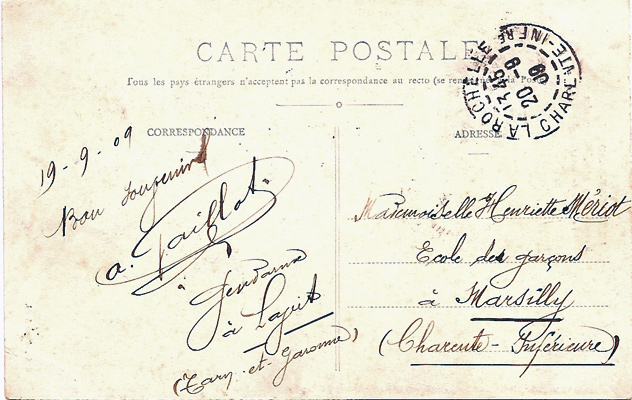 CARTE POSTALE
Tous les pays étrangers n'acceptent pas la correspondance au recto (se rense à la Poste
CORRESPONDANCE
19-9-09
Bon Souvenir
a. Taillot
à
Gendarme
à Lapit
(Tarn-et-Garonne)
ADRESSE
Mademoiselle Henriette Mériot
Ecole des garçons
à Marsilly
(Charente-Inférieure)
LA ROCHELLE
13 45
20 -9
09
CHARTE-INFRE